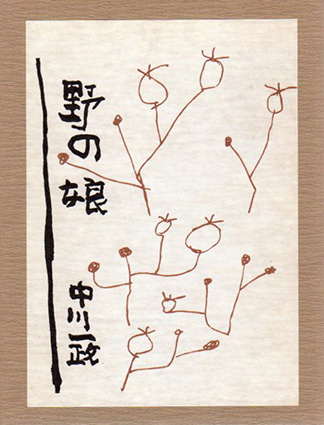 野の娘
中川一政